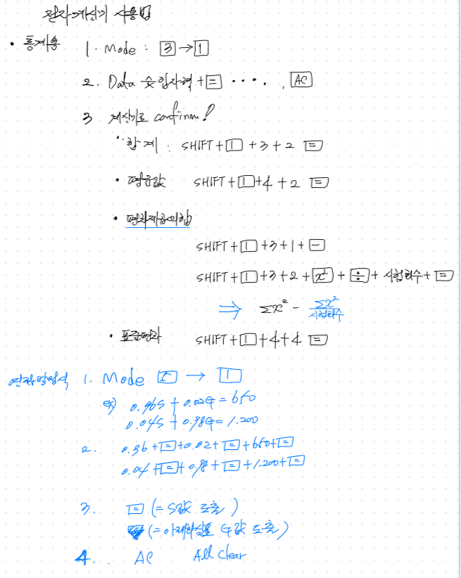 전자계산기 사용법
• 통계용 1. Mode : 3 → 1
2. Data 숫입자력 + = ・・・・ , AC
3 계산기로 confirm!
· 합계 : SHIFT + 1 + 3 + 2 =
• 평균값 SHIFT + 1 + 4 + 2 =
• 편차제곱의합
SHIFT + 1 + 3 + 1 + =
SHIFT + 1 + 3 + 2 + x² + ÷ + 시험횟수 + =
⇒ Σx² - Σx²/시험횟수
• 표준편차 SHIFT + 1 + 4 + 4 =
1. Mode 5 → 1
ex) 0.96S + 0.02G = 650
0.04S + 0.98G = 1.200
2. 0.96 + = + 0.02 + = + 650 + =
0.04 + = + 0.98 + = + 1.200 + =
3. = (= S값 도출)
(= G값 도출)
4. AC All Clear